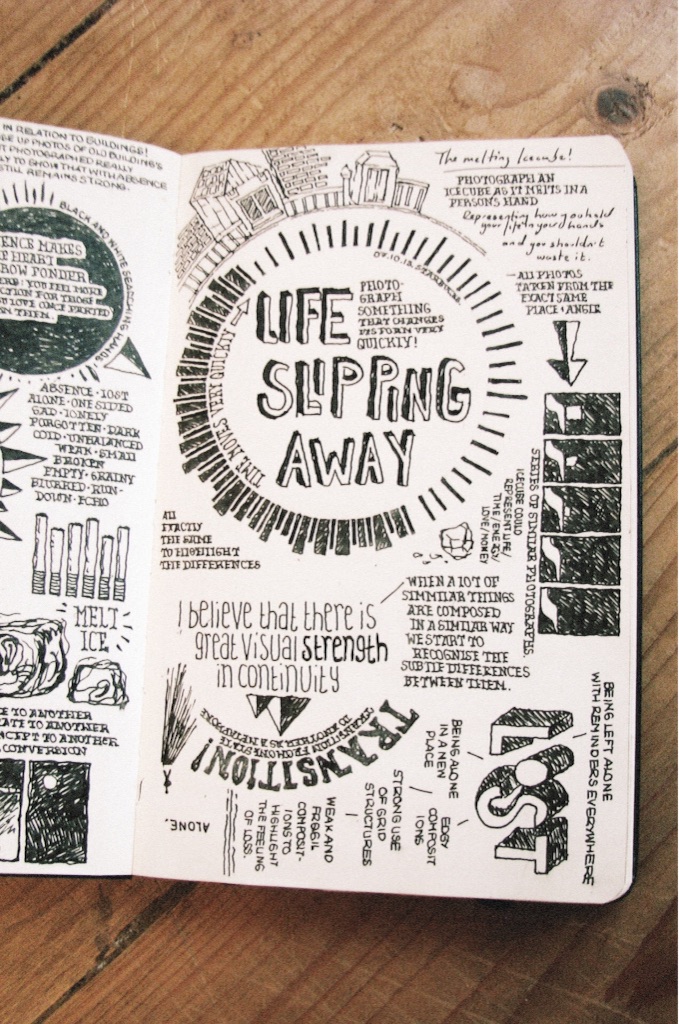 IN RELATION TO BUILDINGS!
UP PHOTOS OF OLD BUILDING'S
PHOTOGRAPHED REALLY
TO SHOW THAT WITH ABSENCE
STILL REMAINS STRONG.
BLACK AND WHITE SEARCHING HANDS
ENCE MAKES
HEART
ROW FONDER
YOU FEEL MORE
CTION FOR THOSE
LOVE ONCE PARTED
THEM.
ABSENCE · LOST
ALONE · ONE SIDED
SAD · LONELY
FORGOTTEN · DARK
COLD · UNBALANCED
WEAK · SMALL
BROKEN
EMPTY · GRAINY
BLURRED · RUN-
DOWN · ECHO
MELT
ICE
TO ANOTHER
TO ANOTHER
TO ANOTHER
CONVERSION
The melting Icecube!
PHOTOGRAPH AN
ICECUBE AS IT MELTS IN A
PERSON'S HAND
Representing how you hold
your life in your hands
and you shouldn't
waste it.
– ALL PHOTOS
TAKEN FROM THE
EXACT SAME
PLACE + ANGLE
09.10.12. STARBUCKS
LIFE
SLIPPING
AWAY
PHOTO-
GRAPH
SOMETHING
THAT CHANGES
ITS FORM VERY
QUICKLY!
TIME MOVES VERY QUICKLY
ALL
EXACTLY
THE SAME
TO HIGHLIGHT
THE DIFFERENCES
ICECUBE COULD
REPRESENT LIFE/
TIME/ENERGY/
LOVE/MONEY
SERIES OF SIMILAR PHOTOGRAPHS.
WHEN A LOT OF
SIMMILAR THINGS
ARE COMPOSED
IN A SIMILAR WAY
WE START TO
RECOGNISE THE
SUBTLE DIFFERENCES
BETWEEN THEM.
I believe that there is
great visual strength
in continuity
TRANSITION FROM ONE STATE
TO ANOTHER AS A METAPHOR
TRANSITION!
LOST
BEING LEFT ALONE
WITH REMINDERS EVERYWHERE
BEING ALONE
IN A NEW
PLACE
EDGY
COMPOSIT
IONS
STRONG USE
OF GRID
STRUCTURES
WEAK AND
FRAGIL
COMPOSIT-
IONS TO
HIGHLIGHT
THE FEELING
OF LOSS.
ALONE.